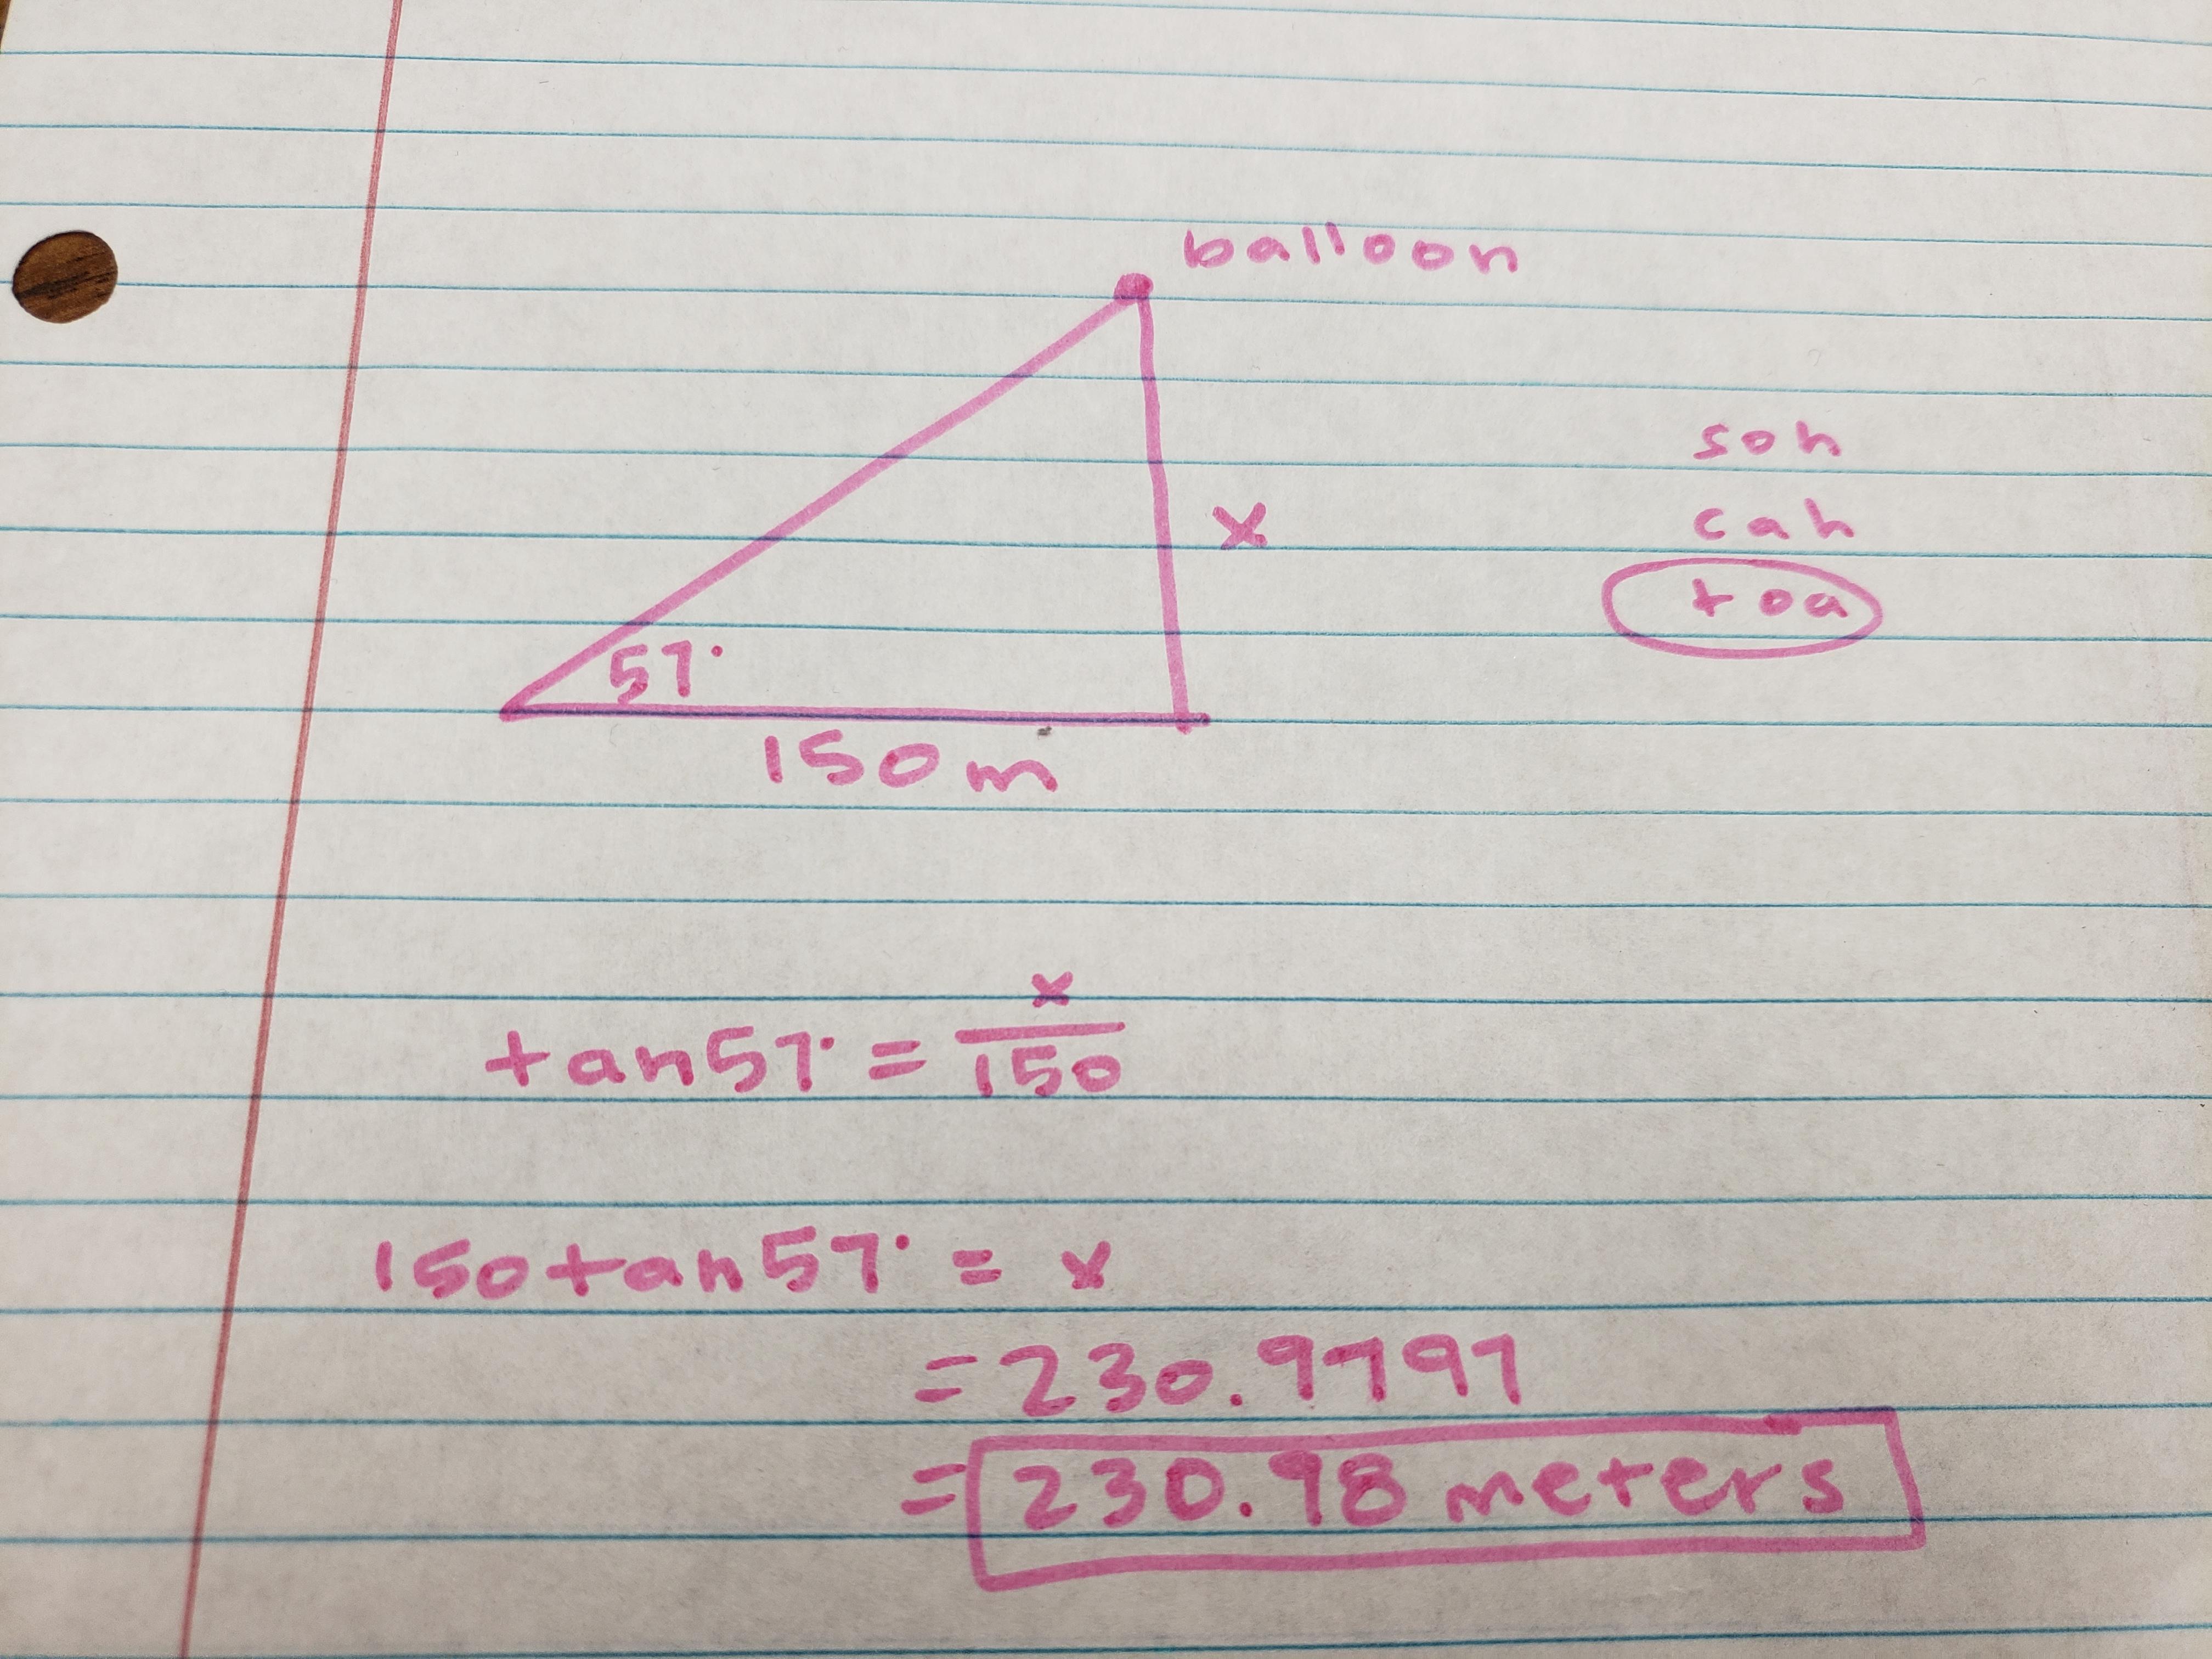 balloon
x
57°
150 m
soh
cah
toa
tan57° = x/150
150tan57° = x
= 230.9797
= 230.98 meters